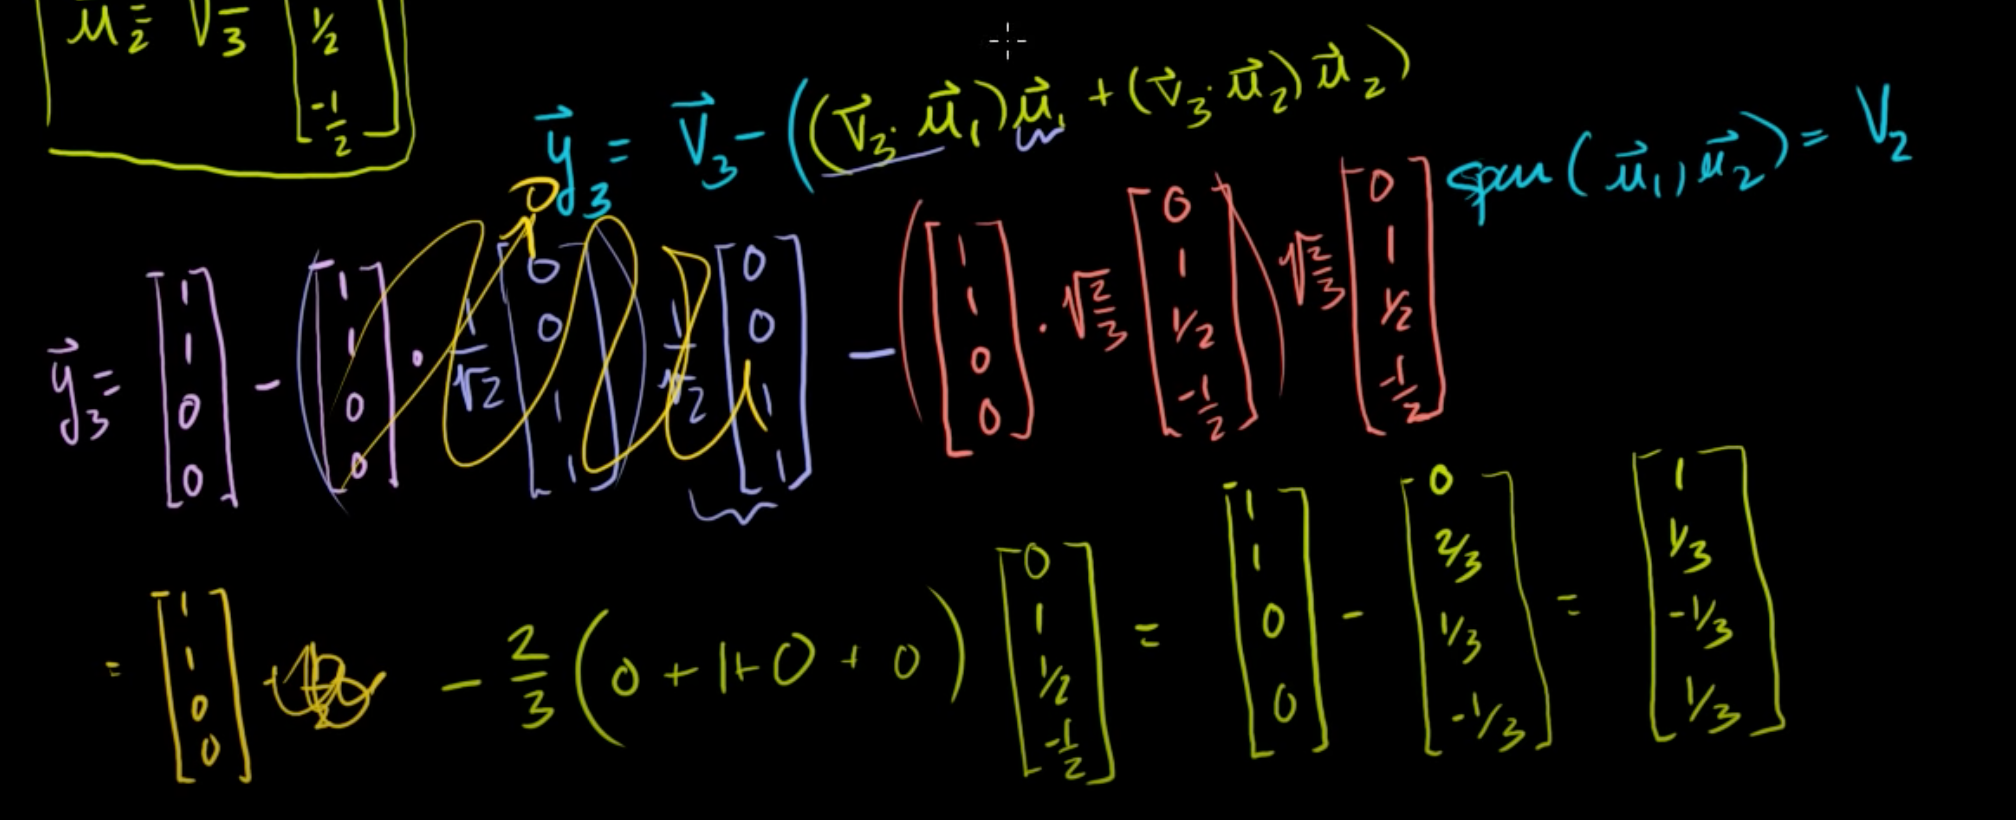 u⃗₂ = √2/3 [ 1/2 -1/2 ]
y⃗₃ = v⃗₃ - ((v⃗₃ · u⃗₁)u⃗₁ + (v⃗₃ · u⃗₂)u⃗₂)
span(u⃗₁, u⃗₂) = V₂
0
y⃗₃ = [1 1 0 0] - ([1 1 0 0] · 1/√2 [0 0 1 1]) 1/√2 [0 0 1 1] - ([1 1 0 0] · √2/3 [0 1 1/2 -1/2]) √2/3 [0 1 1/2 -1/2]
= [1 1 0 0] - 2/3 (0 + 1 + 0 + 0) [0 1 1/2 -1/2] = [1 1 0 0] - [0 2/3 1/3 -1/3] = [1 1/3 -1/3 1/3]